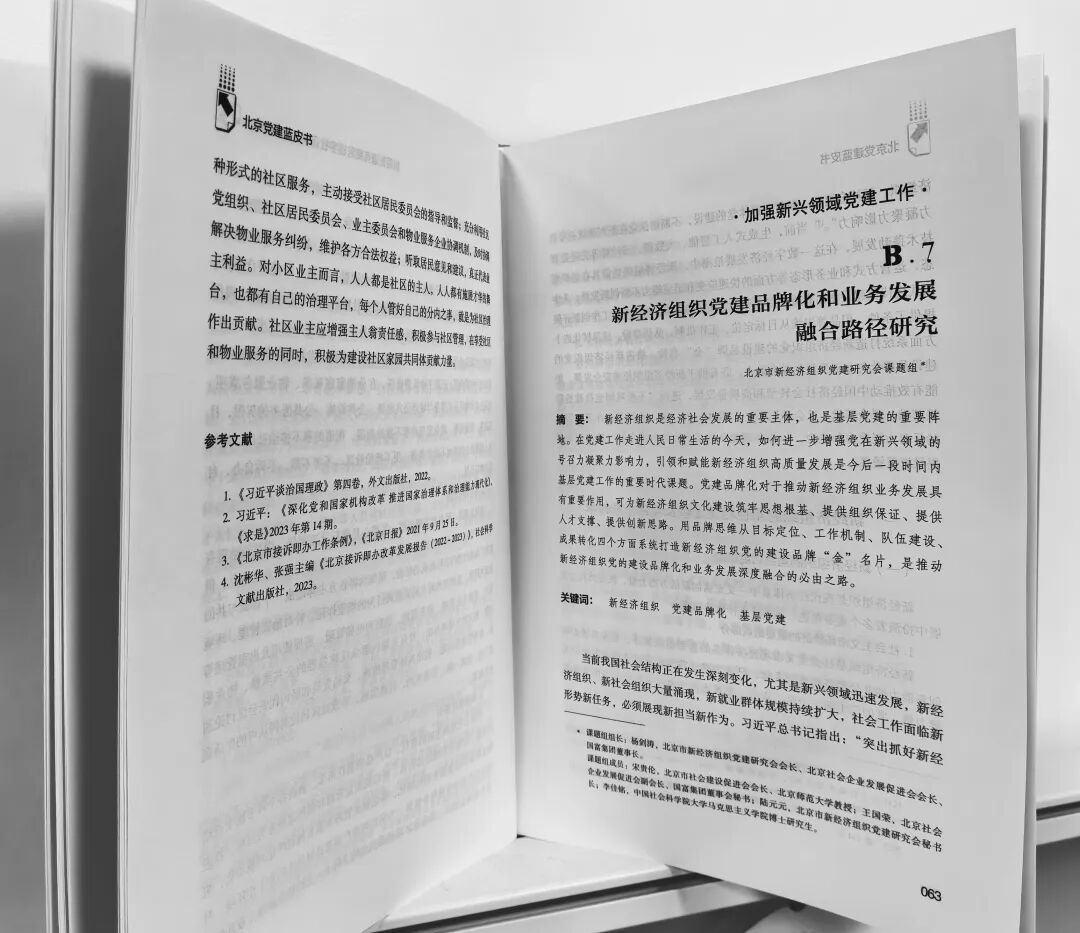 北京党建蓝皮书
种形式的社区服务，主动接受社区居民委员会的指导和监督；充分利用社区
党组织、社区居民委员会、业主委员会和物业服务企业协调机制，及时协调
解决物业服务纠纷，维护各方合法权益；听取居民意见和建议，真正代表业
主利益。对小区业主而言，人人都是社区的主人，人人都有施展才华的舞
台，也都有自己的治理平台，每个人管好自己的分内之事，就是为社区治理
作出贡献。社区业主应增强主人翁责任感，积极参与社区管理，在享受社区
和物业服务的同时，积极为建设社区家园共同体贡献力量。
参考文献
1.《习近平谈治国理政》第四卷，外文出版社，2022。
2. 习近平：《深化党和国家机构改革 推进国家治理体系和治理能力现代化》，
《求是》2023 年第 14 期。
3.《北京市接诉即办工作条例》，《北京日报》2021 年 9 月 25 日。
4. 沈彬华、张强主编《北京接诉即办改革发展报告（2022~2023）》，社会科学
文献出版社，2023。
·加强新兴领域党建工作·
B.7
新经济组织党建品牌化和业务发展
融合路径研究
北京市新经济组织党建研究会课题组*
摘 要： 新经济组织是经济社会发展的重要主体，也是基层党建的重要阵
地。在党建工作走进人民日常生活的今天，如何进一步增强党在新兴领域的
号召力凝聚力影响力，引领和赋能新经济组织高质量发展是今后一段时间内
基层党建工作的重要时代课题。党建品牌化对于推动新经济组织业务发展具
有重要作用，可为新经济组织文化建设筑牢思想根基、提供组织保证、提供
人才支撑、提供创新思路。用品牌思维从目标定位、工作机制、队伍建设、
成果转化四个方面系统打造新经济组织党的建设品牌“金”名片，是推动
新经济组织党的建设品牌化和业务发展深度融合的必由之路。
关键词： 新经济组织 党建品牌化 基层党建
当前我国社会结构正在发生深刻变化，尤其是新兴领域迅速发展，新经
济组织、新社会组织大量涌现，新就业群体规模持续扩大，社会工作面临新
形势新任务，必须展现新担当新作为。习近平总书记指出：“突出抓好新经
* 课题组组长：杨剑涛，北京市新经济组织党建研究会会长、北京社会企业发展促进会会长、
国富集团董事长。
课题组成员：宋贵伦，北京市社会建设促进会会长、北京师范大学教授；王国荣，北京社会
企业发展促进会副会长、国富集团董事会秘书；陆元元，北京市新经济组织党建研究会秘书
长；李佳铭，中国社会科学院大学马克思主义学院博士研究生。
063